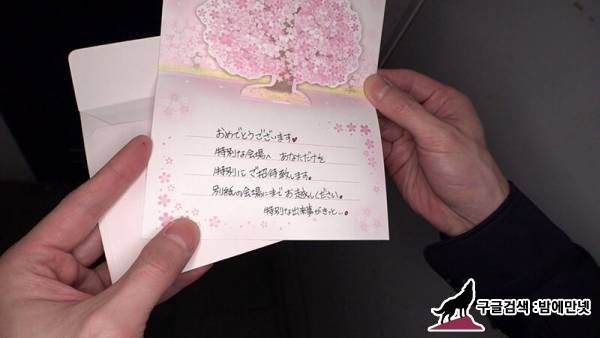 おめでとうございます♥
特別な会場へ あなただけを
特別に ご招待致します。
別紙の会場にまで お越しください。
特別な出来事がきっと…。
구글검색 :밤에만넷